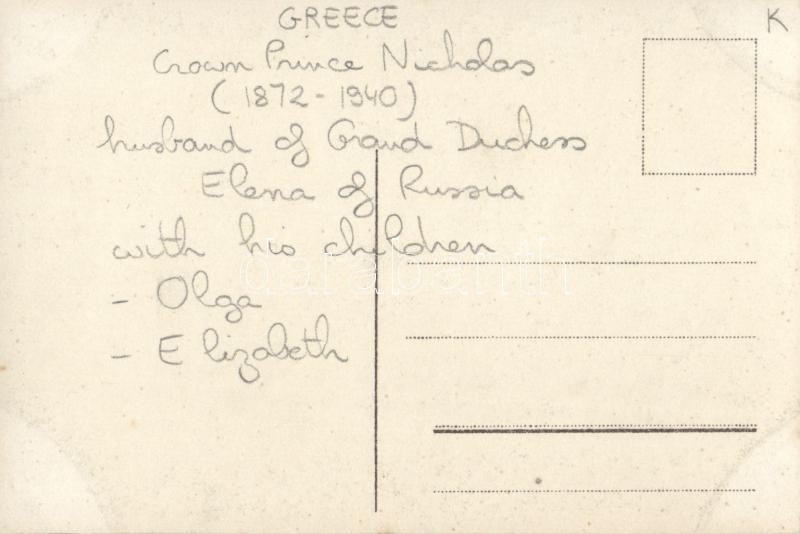 GREECE
K
Crown Prince Nicholas
(1872-1940)
husband of Grand Duchess
Elena of Russia
with his children
darabanth
- Olga
- Elizabeth